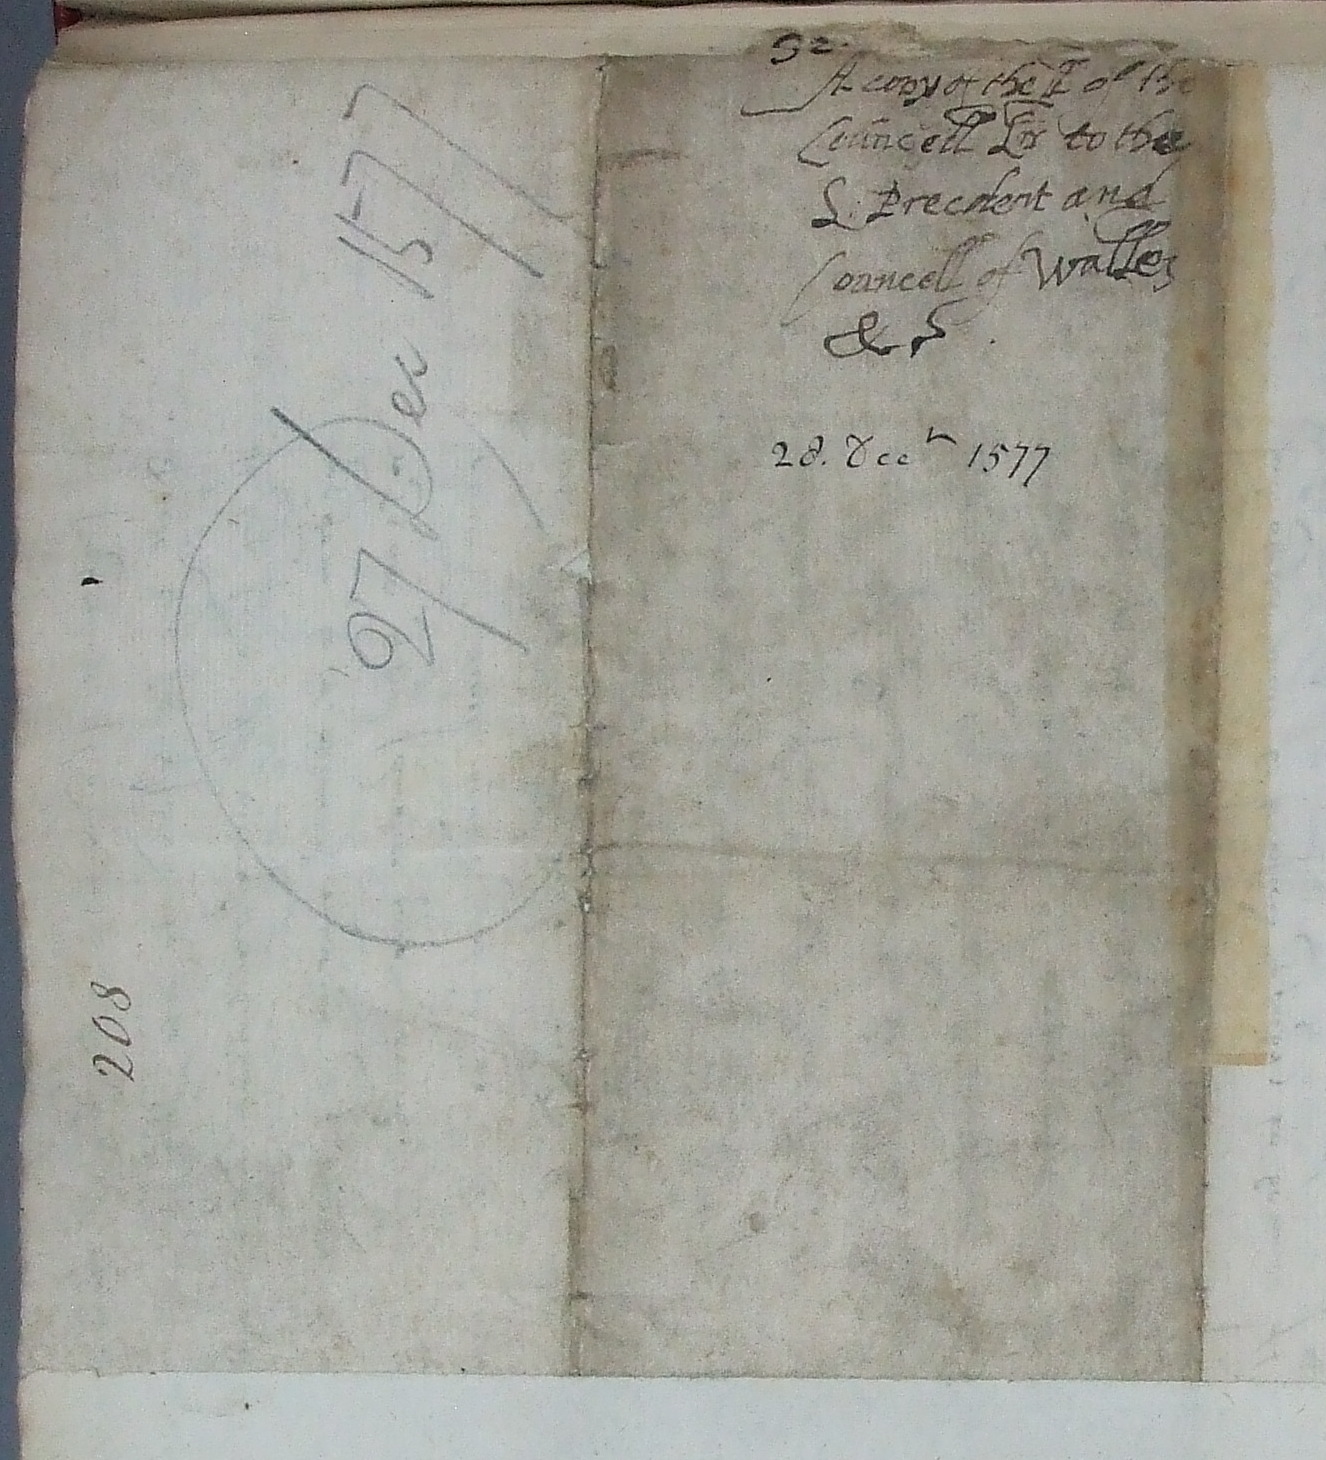 92.
A copy of the L of the
Councell Lr̃ to the
L. Precident and
Councell of Walles
&c
28. Decr 1577
27 Dec 1577
208